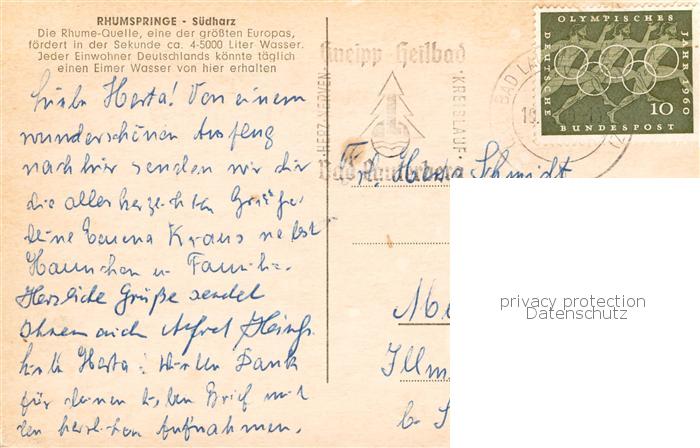 RHUMSPRINGE - Südharz
Die Rhume-Quelle, eine der größten Europas,
fördert in der Sekunde ca. 4-5000 Liter Wasser.
Jeder Einwohner Deutschlands könnte täglich
einen Eimer Wasser von hier erhalten
Liebe Herta! Von einem
wunderschönen Ausflug
nach hier senden wir dir
die allerherzlichsten Grüße
deine Kraus nebst
Hannchen u Familie.
Herzliche Grüße sendet
Ihnen auch
Herta! Dank
für deinen lieben Brief mit
den herrlichen Aufnahmen.
Kneipp-Heilbad
HERZ NERVEN
KREISLAUF
Bad Lauterberg
BAD
OLYMPISCHES
JAHR 1960
DEUTSCHE
BUNDESPOST
10
Fr. Herta Schmidt
Me
Illm
b. S
privacy protection
Datenschutz